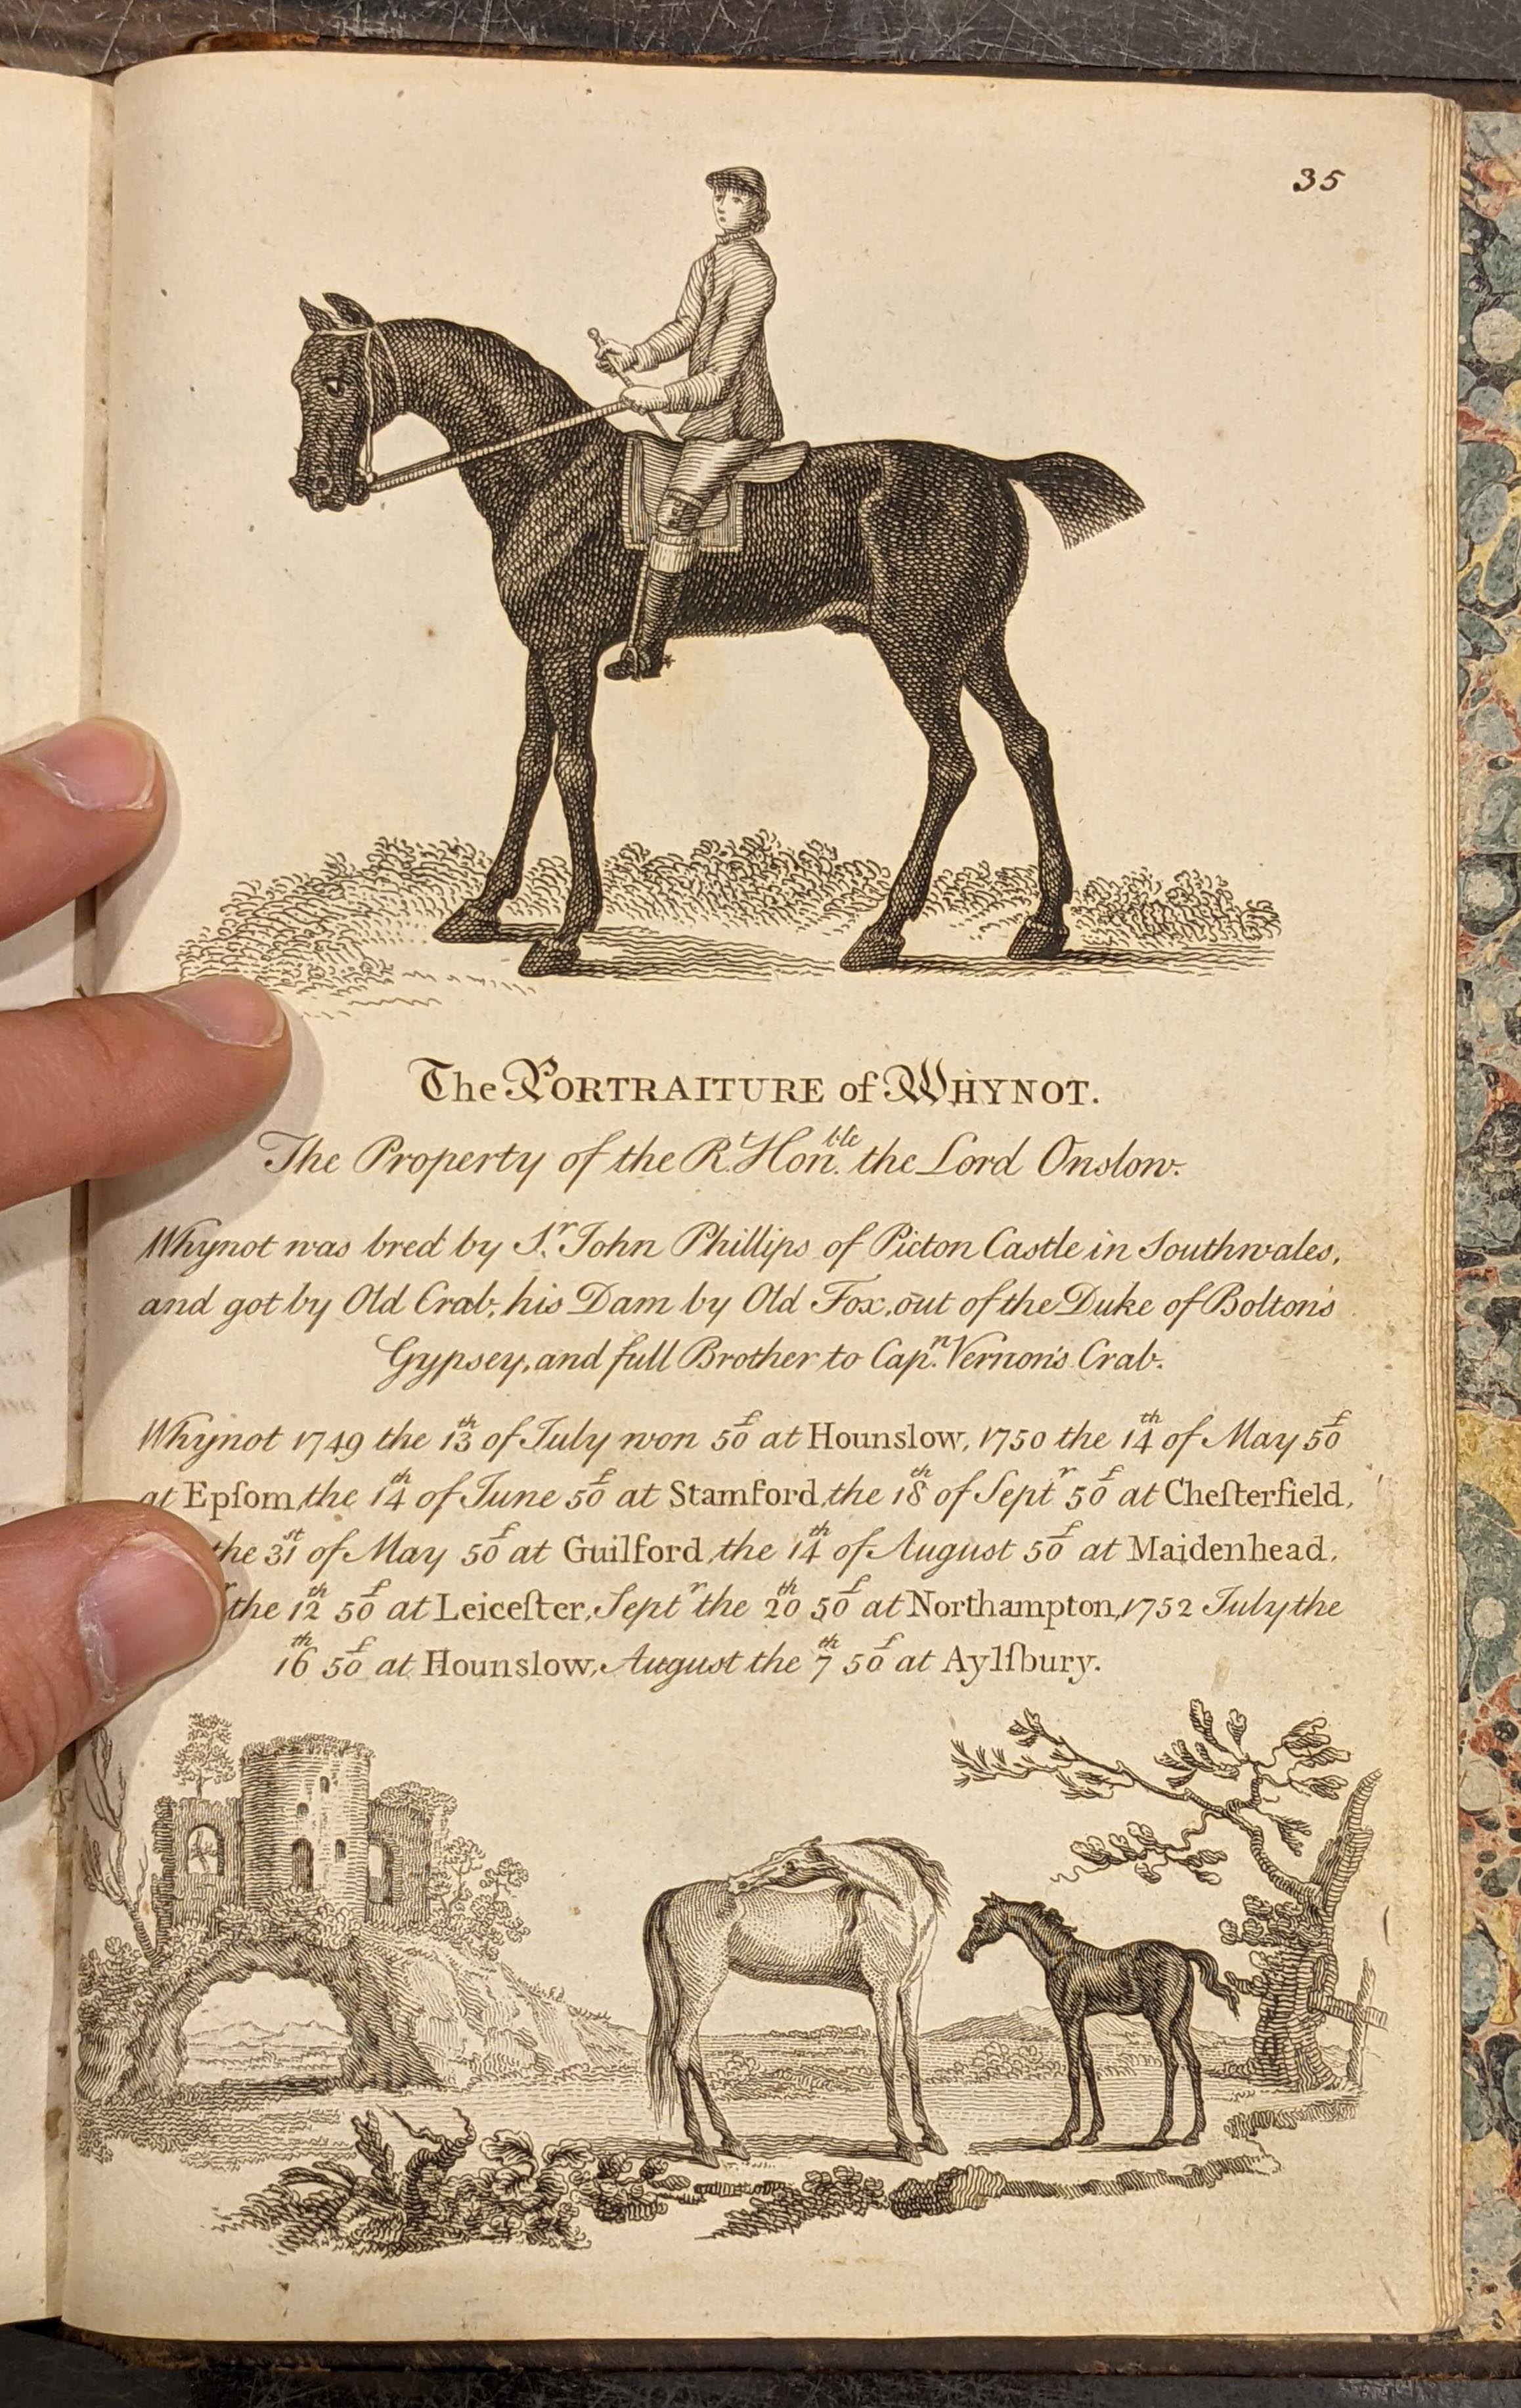 35
The PORTRAITURE of WHYNOT.
The Property of the Rt. Honble. the Lord Onslow.
Whynot was bred by Sr. John Phillips of Picton Castle in Southwales,
and got by Old Crab, his Dam by Old Fox, out of the Duke of Bolton's
Gypsey, and full Brother to Capn. Vernon's Crab.
Whynot 1749 the 13th of July won 50£ at Hounslow, 1750 the 14th of May 50£
at Epſom, the 14th of June 50£ at Stamford, the 18th of Septr 50£ at Cheſterfield,
the 31st of May 50£ at Guilford, the 14th of August 50£ at Maidenhead,
the 12th 50£ at Leiceſter, Septr the 20th 50£ at Northampton, 1752 July the
16th 50£ at Hounslow, August the 7th 50£ at Aylſbury.